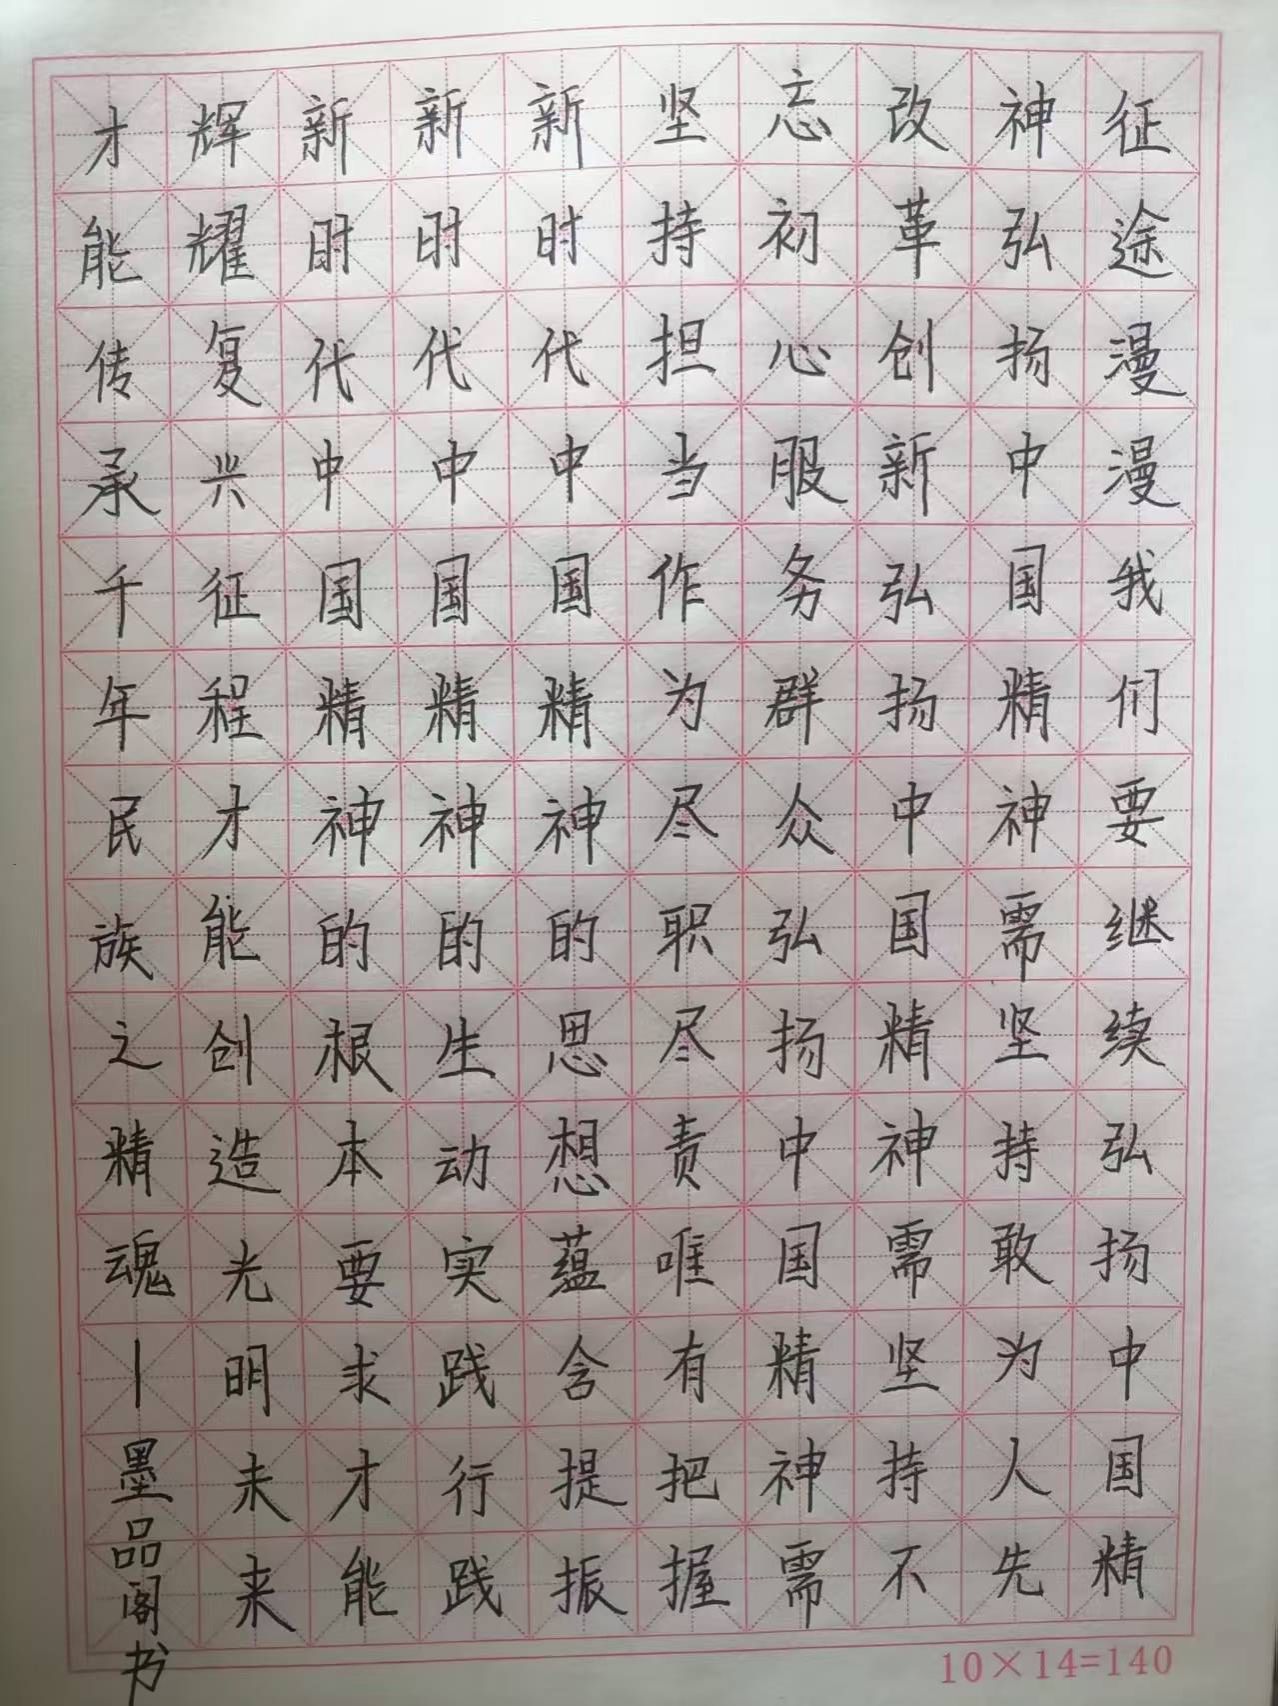 征途漫漫我们要继续弘扬中国精
神弘扬中国精神需坚持敢为人先
改革创新弘扬中国精神需坚持不
忘初心服务群众弘扬中国精神需
坚持担当作为尽职尽责唯有把握
新时代中国精神的思想蕴含提振
新时代中国精神的生动实践行践
新时代中国精神的根本要求才能
辉耀复兴征程才能创造光明未来
才能传承千年民族之精魂—墨品阁书
10×14=140